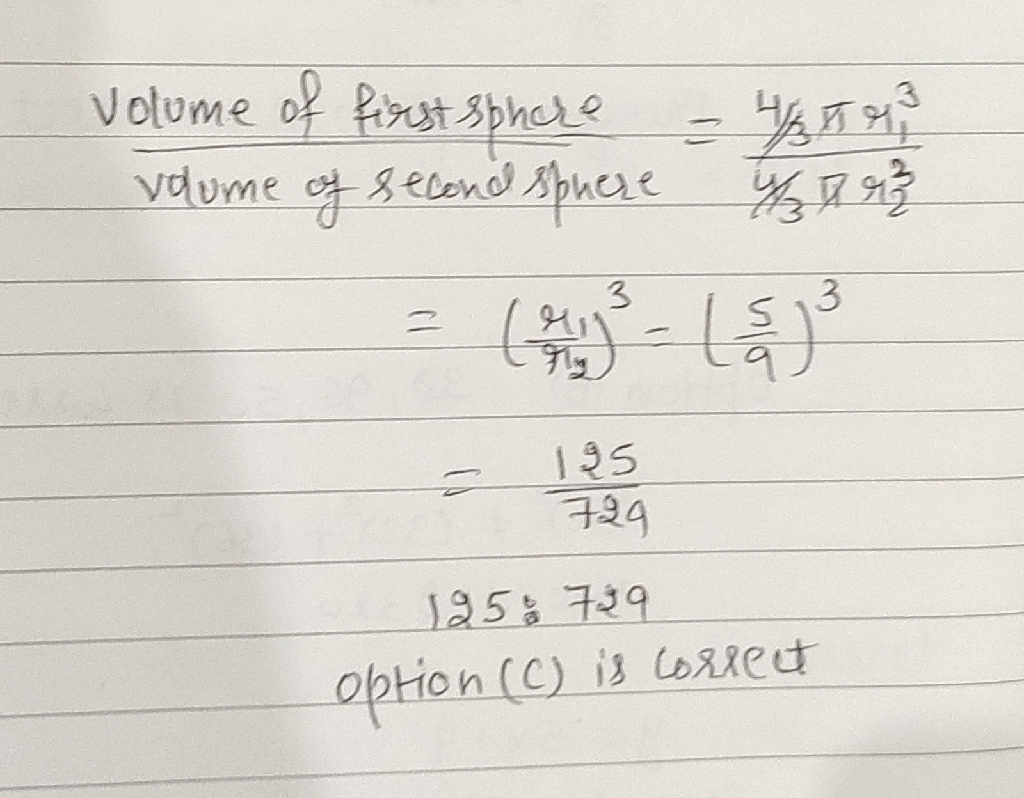 Volume of first sphere = 4/3 π r₁³
volume of second sphere 4/3 π r₂³
= (r₁/r₂)³ = (5/9)³
= 125
729
125 : 729
option (C) is correct